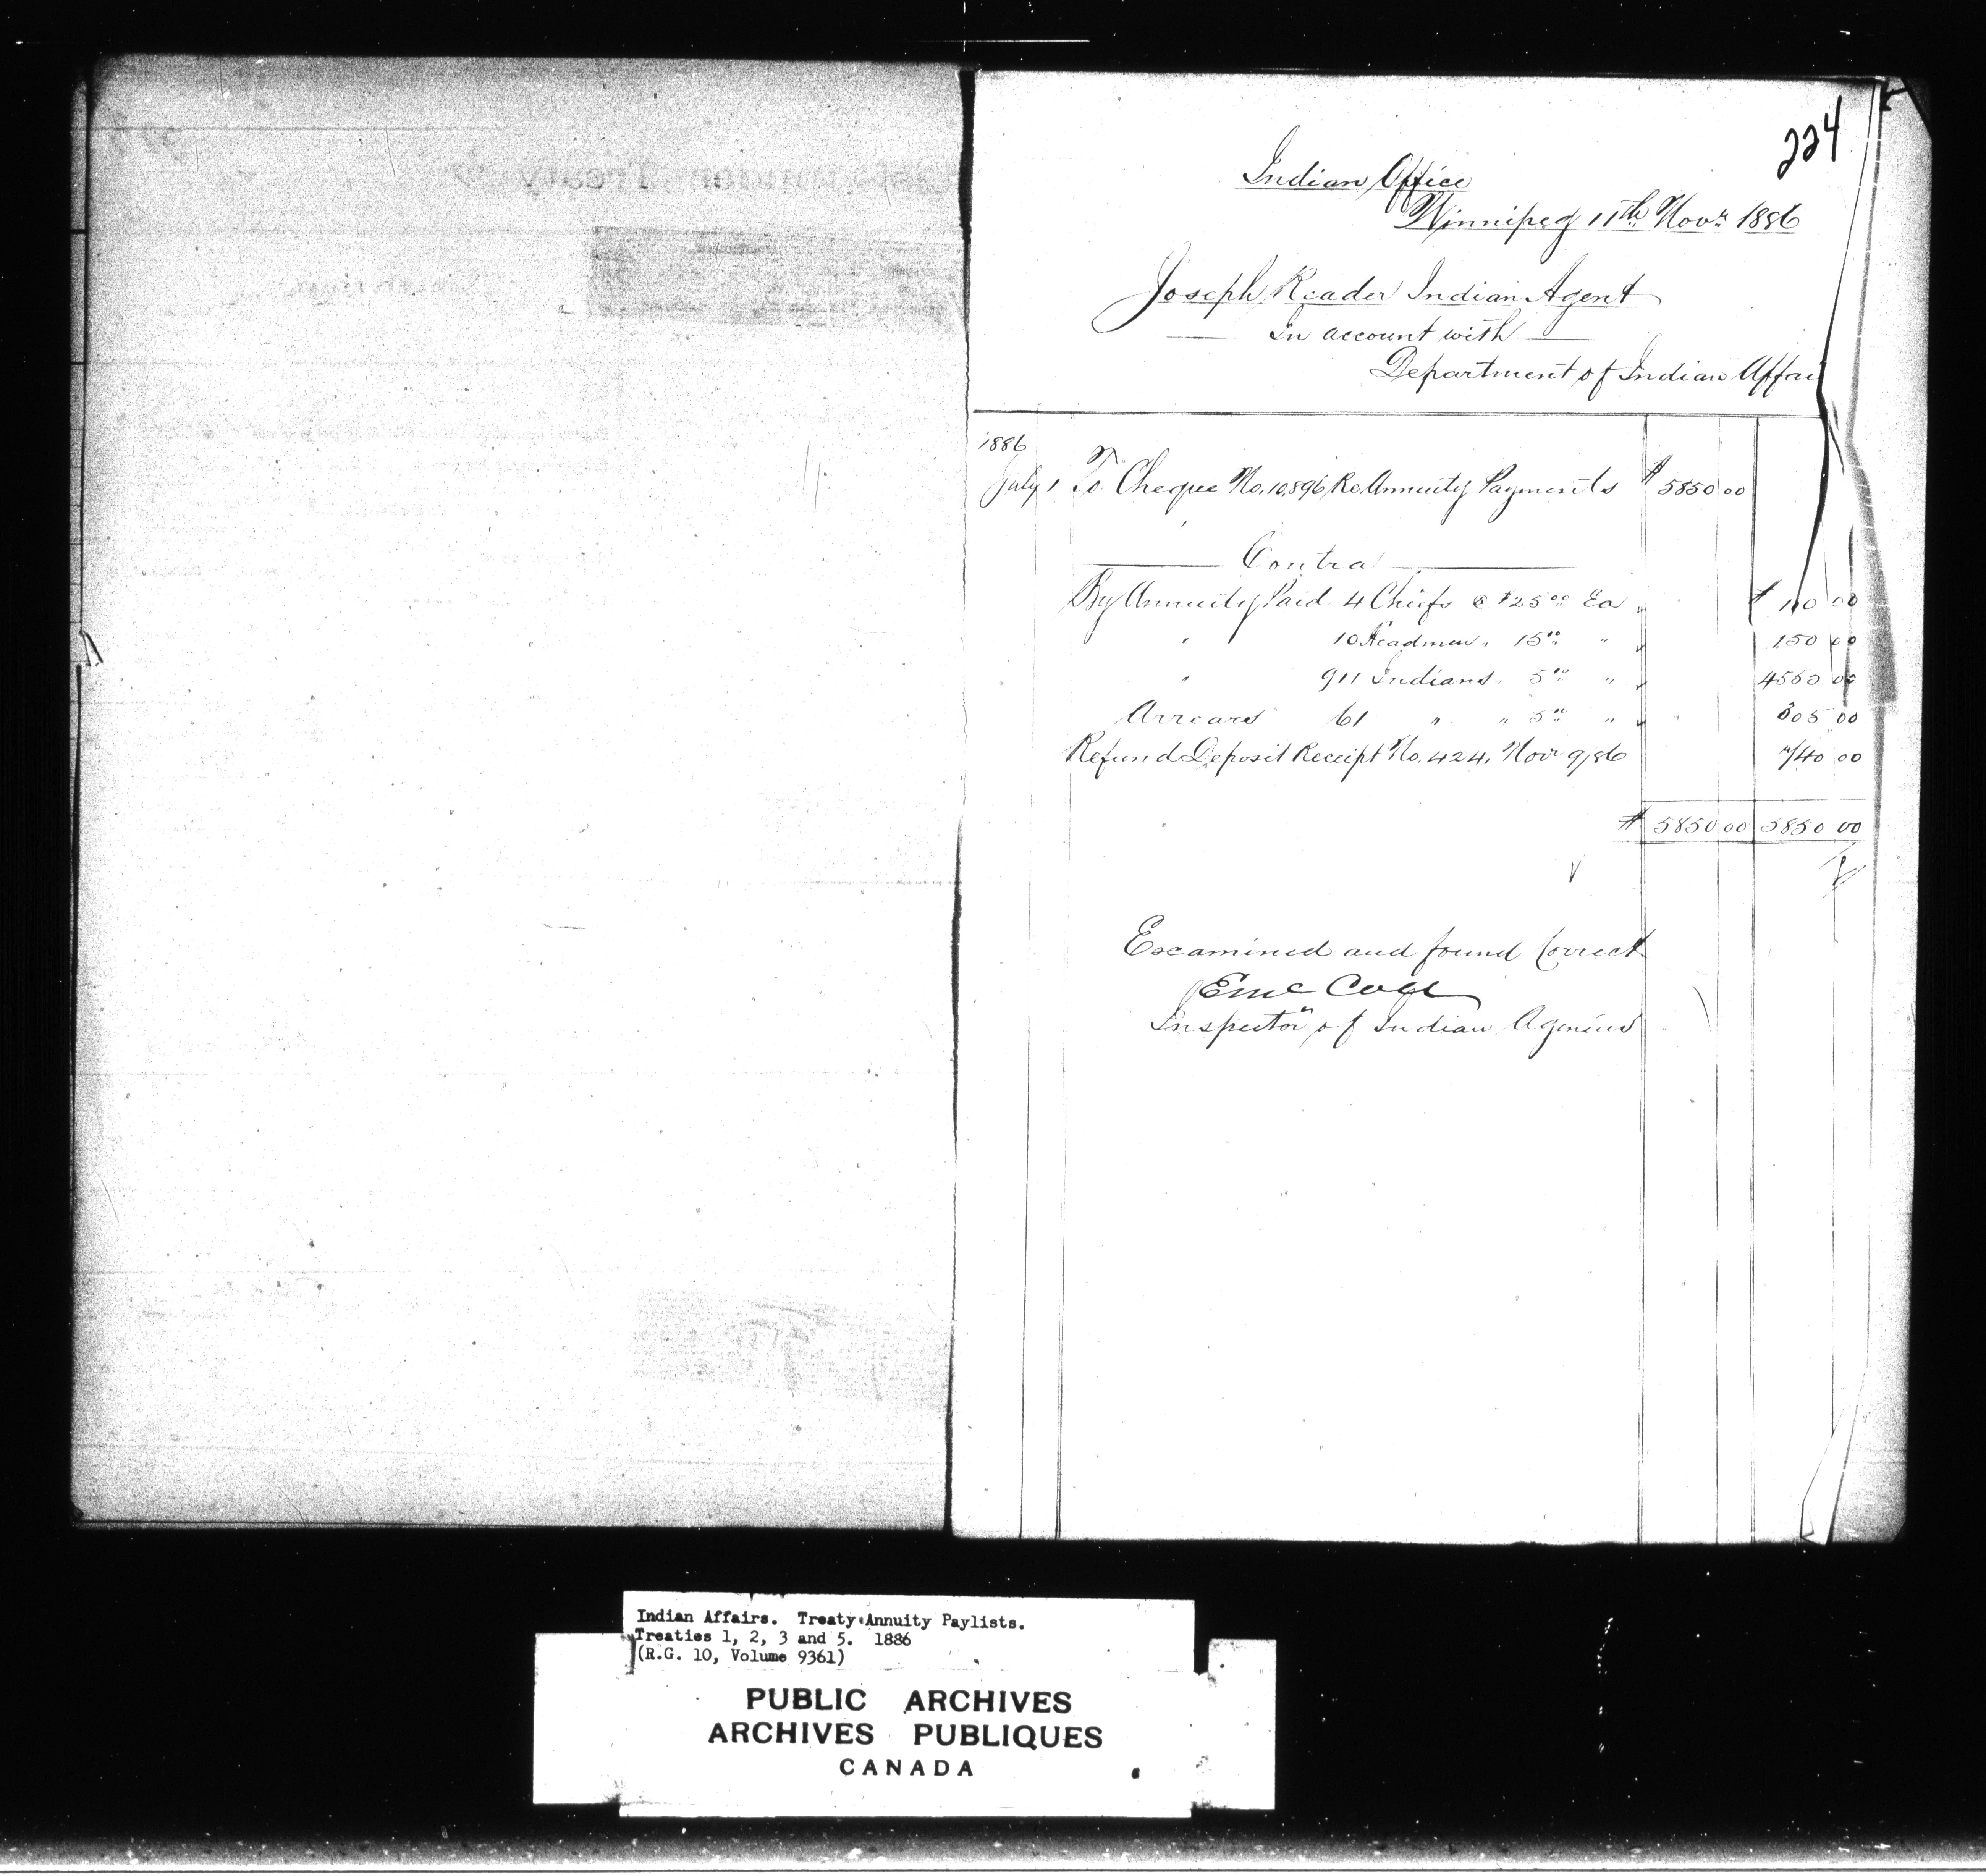 224
Indian Office
Winnipeg 11th Novr. 1886
Joseph Reader Indian Agent
In account with
Department of Indian Affai
1886
July 1 To Cheque No. 10,896 Re Annuity Payments $ 5850 00
Contra
By Annuity Paid 4 Chiefs @ $25 00 Ea " $ 100 00
" 10 Headmen " 15 00 " " 150 00
" 911 Indians " 5 00 " " 4555 00
Arrears 61 " " 5 00 " " 305 00
Refund Deposit Receipt No. 424, Novr 9/86 740 00
$ 5850 00 5850 00
Examined and found Correct
E McColl
Inspector of Indian Agencies
Indian Affairs. Treaty Annuity Paylists.
Treaties 1, 2, 3 and 5. 1886
(R.G. 10, Volume 9361)
PUBLIC ARCHIVES
ARCHIVES PUBLIQUES
CANADA